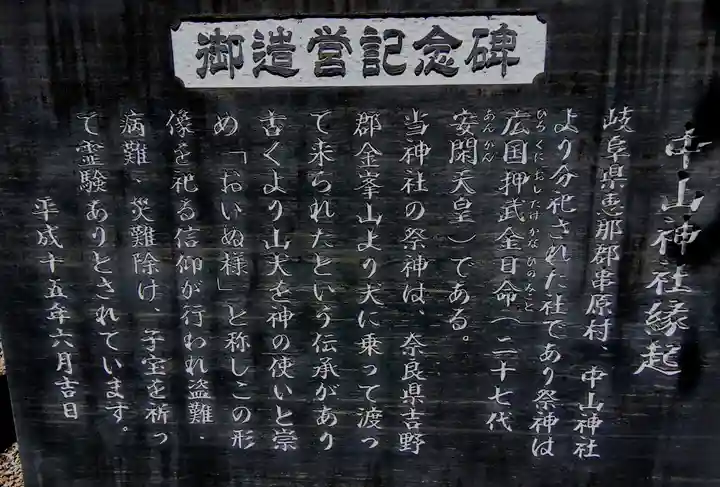 御造営記念碑
中山神社縁起
岐阜県恵那郡串原村、中山神社
より分祀された社であり祭神は
広国押武金日命（二十七代
ひろくにおしたけかなひのみこと
安閑天皇）である。
あんかん
当神社の祭神は、奈良県吉野
郡金峯山より犬に乗って渡っ
て来られたという伝承があり
古くより山犬を神の使いと崇
め「おいぬ様」と称しこの形
像を祀る信仰が行われ盗難、
病難、災難除け、子宝を祈っ
て霊験ありとされています。
平成十五年六月吉日